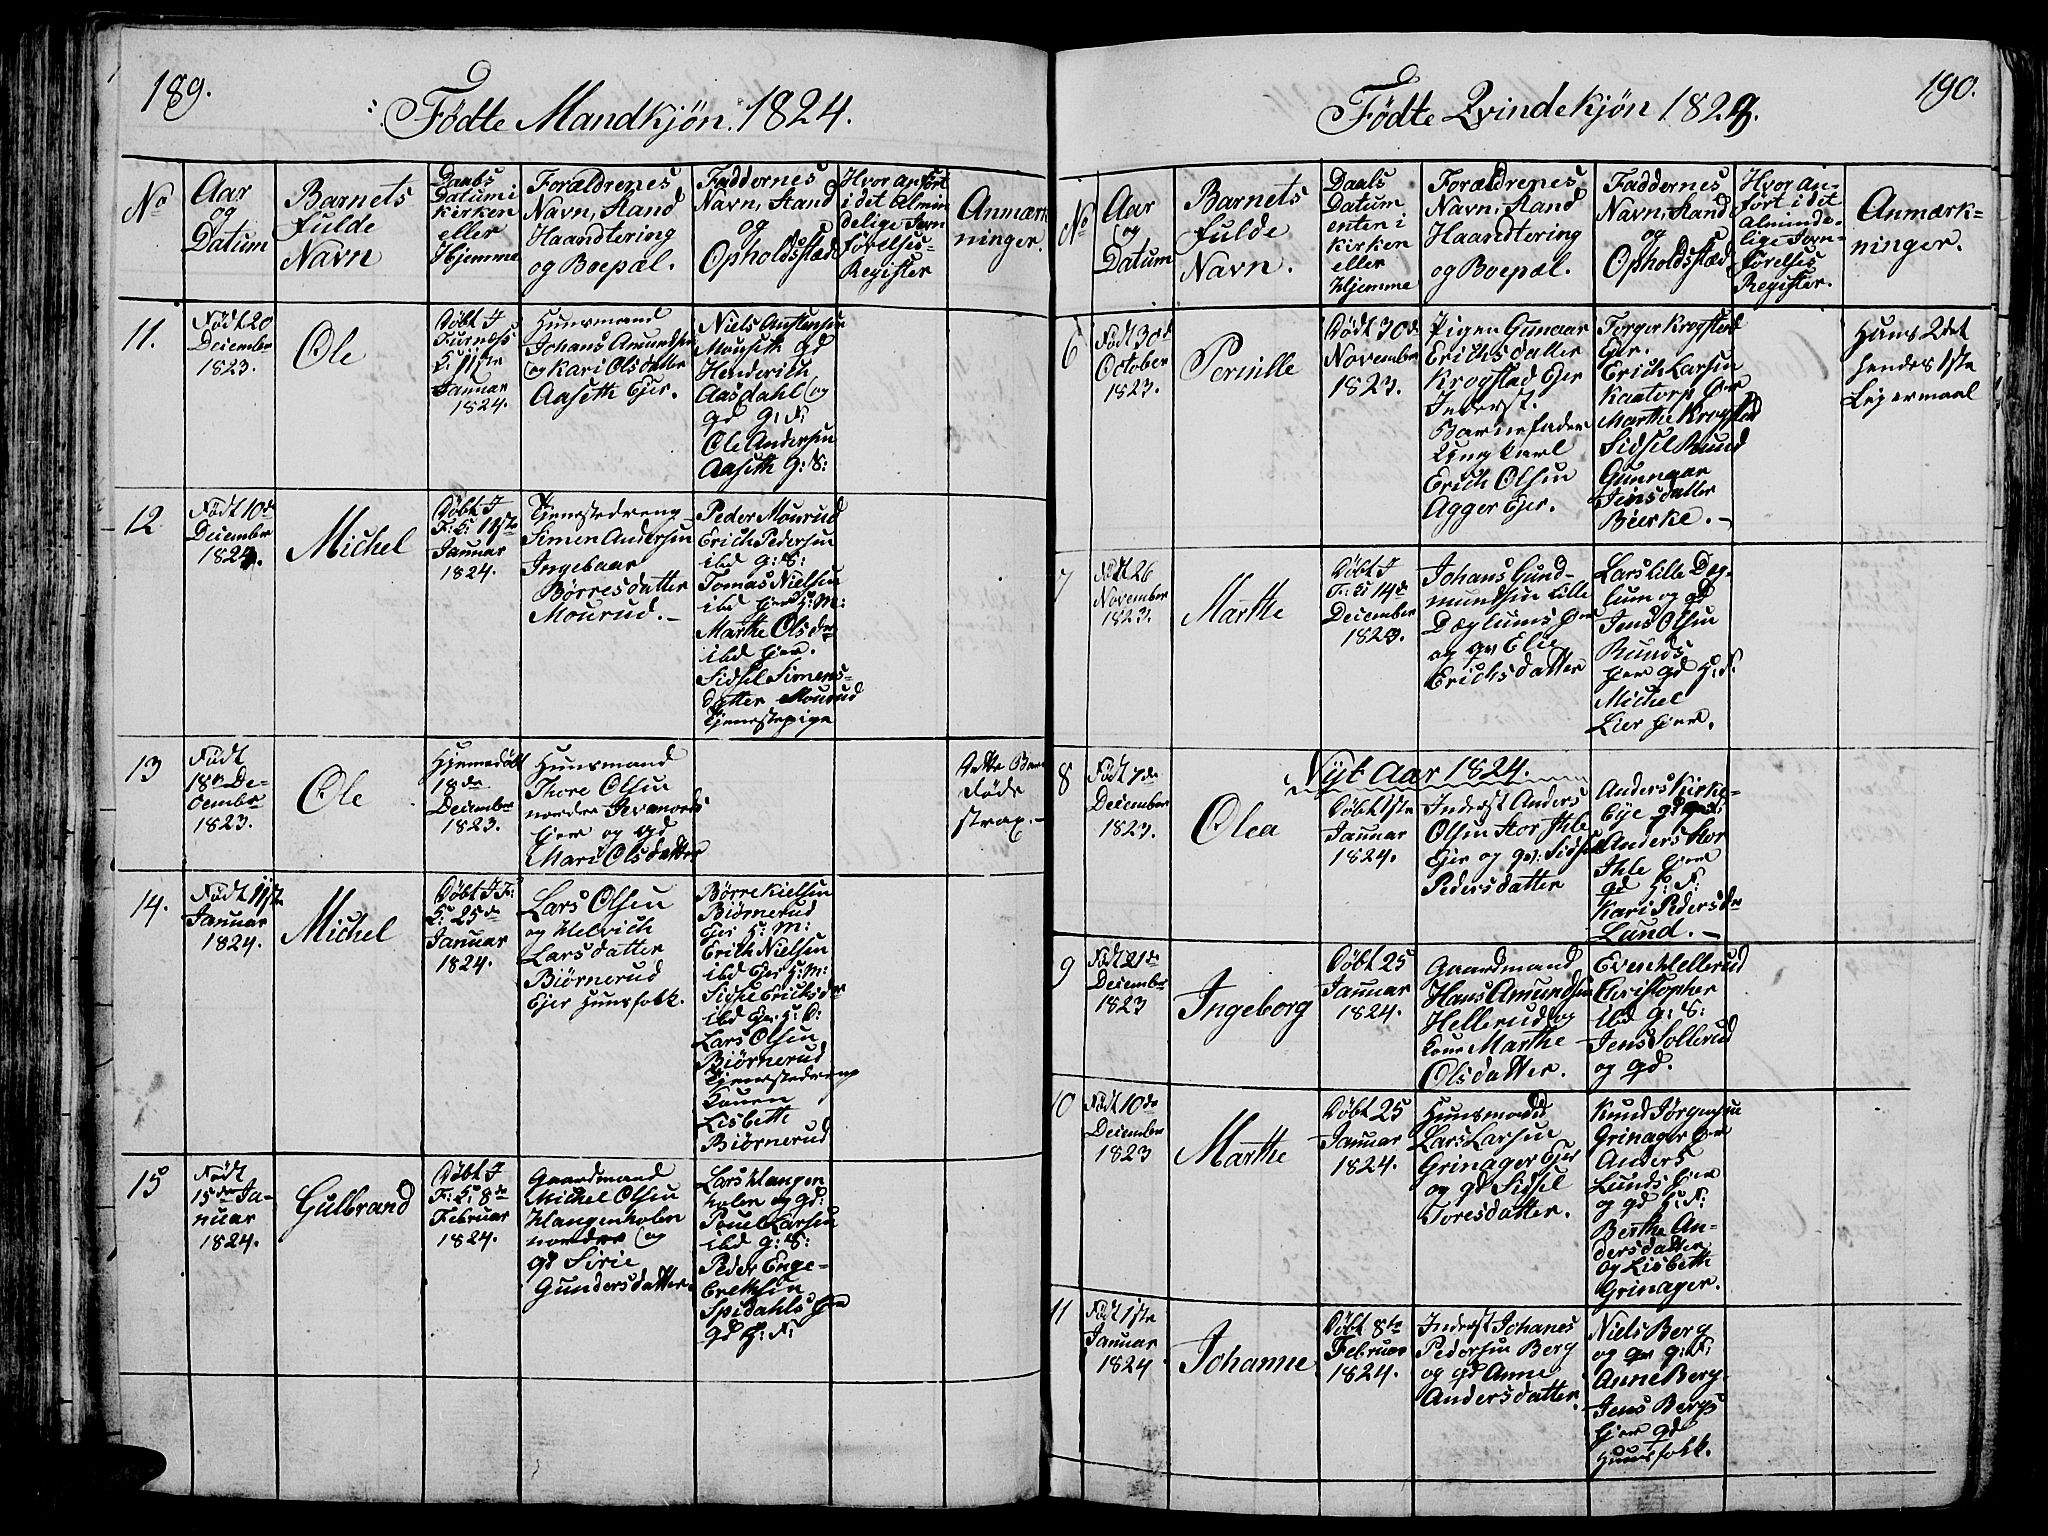 189.
Fødte Mandkjön. 1824.
No
Aar
og
Datum
Barnets
fulde
Navn
Daabs
Datum i
kirken
eller
Hjemme
Forældrenes
Navn, Stand
Haandtering
og Boepæl.
Faddernes
Navn, Stand
og
Opholdssted
Hvor anført
i det Almin
delige Jevn
førelses-
Register
Anmærk
ninger.
11.
Født 20
December
1823.
Ole
Døbt I
Furness
K: 11te
Januar
1824.
Huusmand
Johans Amundsen
og Kari Olsdatter
Aaseth Ejer.
Niels Austensen
Mouseth gd
Henderich
Aasdahl og
gd G: F:
Ole Andersen
Aaseth G: S:
12.
Født 10de
December
1823.
Michel
Døbt I
F: K: 11te
Januar
1824.
Tjenestedreng
Simen Andersen
Ingebaar
Børresdatter
Mourud.
Peder Mourud
Erich Pedersen
ibd G: S:
Tomas Nielsen
ibd Ejer H: M:
Marthe Olsdr
ibd Ejer.
Sidsel Simens-
datter Mourud
Tjenestepige
13
Født
18de De-
cember
1823.
Ole
Hjemedøbt
18de
December
1823.
Huusmand
Thore Olsen
nordre
Ejer og gd
Mari Olsdatter
dette Barn
døde
strax.
14.
Født 11te
Januar
1824.
Michel
Døbt I F:
K: 25de
Januar
1824.
Lars Olsen
og Helvich
Larsdatter
Biørnerud
Ejer Huusfolk.
Børre Kielsen
Biørnerud
Ejer H: M:
Erich Nielsen
ibd Ejer H: M:
Sidse Ericksdr
ibd Ejer H: D:
Lars Olsen
Biørnerud
Tjenestedreng
Konen
Lisbeth
Biørnerud
15
Født
15de Ja-
nuar
1824.
Gulbrand
Døbt I
F: K: 8de
Februar
1824.
Gaardmand
Michel Olsen
Klangenholen
nordre og
gd Sirie
Gundersdatter.
Lars Klangen
holen og gd.
Pouel Larsen
ibd G: S:
Peder Enge-
bretsen
Spidahls Ejer
gd H: F:
190.
Fødte Qvindekjön 1824.
No
Aar
og
Datum
Barnets
fulde
Navn.
Daabs
Datum
enten i
kirken
eller
Hjemme
Forældrenes
Navn, Stand
Haandtering
og Boepæl.
Faddernes
Navn, Stand
og
Opholdssted
Hvor an-
ført i dit
Alminde-
lige Jevn-
førelses
Register.
Anmærk-
ninger.
6
Født 30de
October
1823.
Pernille
Døbt 30de
November
1823.
Pigen Gunaar
Erichsdatter
Krogstad Ejer
Inderst.
Barnefader
Ung Karl
Erich Olsen
Agger Ejer.
Torger Krogstad
Ejer.
Erich Larsen
Kaatorp Ejer
Marthe Krogstad
Sidsel Ruud
Gunnaar
Jensdatter
Bierke.
Huns 2det
hendes 1ste
Lejermaal
7
Født 26
November
1823.
Marthe
Døbt I
F: K: 14de
December
1823.
Johans Gund-
mundsen Lille
Dæglums Ejer
og gv Elie
Erichsdatter
Lars Lille Dæg-
lum og gd
Jens Olsen
Runds
Ejer gd H: F:
Michel
Lier Ejer.
Nÿt Aar 1824.
8
Født 7de
December
1823.
Olea
Døbt 1ste
Januar
1824.
Inderst Anders
Olsen Stor Ihle
Ejer og gv: Sidsel
Pedersdatter
Anders Kirke-
Eÿe
Anders Stor
Ihle Ejer
gd H: F:
Kari Pedersdr
Lund.
9
Født 21de
December
1823
Ingeborg
Døbt 25
Januar
1824.
Gaardmand
Hans Amundsen
Hellerud og
Kone Marthe
Olsdatter.
Even Hellerud
Christopher
ibd G: S:
Jens Sollerud
og gd.
10
Født 10de
December
1823
Marthe
Døbt 25
Januar
1824.
Huusmand
Lars Larsen
Grinager Ejer
og gd Sidsel
Toresdatter.
Knud Jørgensen
Grinager Ejer
Anders
Lunds Ejer
og gd H: F:
Berthe An-
dersdatter
og Lisbeth
Grinager.
11
Født 1ste
Januar
1824
Johanne
Døbt 8de
Februar
1824.
Inderst Johanes
Pedersen Berg
og gd Anne
Andersdatter.
Niels Berg
og gv G: F:
Anne Berg.
Jens Bergs
Ejer gd
Huusfolk.